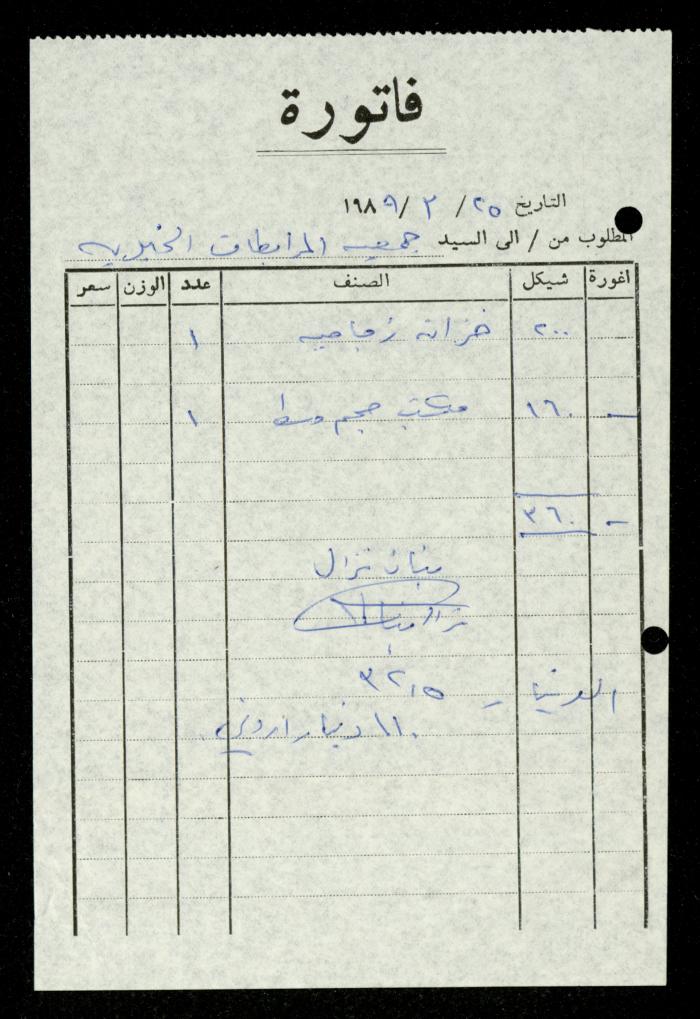 فاتورة
التاريخ ٢٥ / ٣ / ١٩٨٩
المطلوب من / الى السيد جمعيه المرابطات الخيريه
اغورة شيكل الصنف عدد الوزن سعر
٢٠٠ خزانه زجاجيه ١
- ١٦٠ مكتب حجم وسط ١
- ٣٦٠
نزال
نزال
الدينار - ٣٢٥
١١٠ دينار اردني